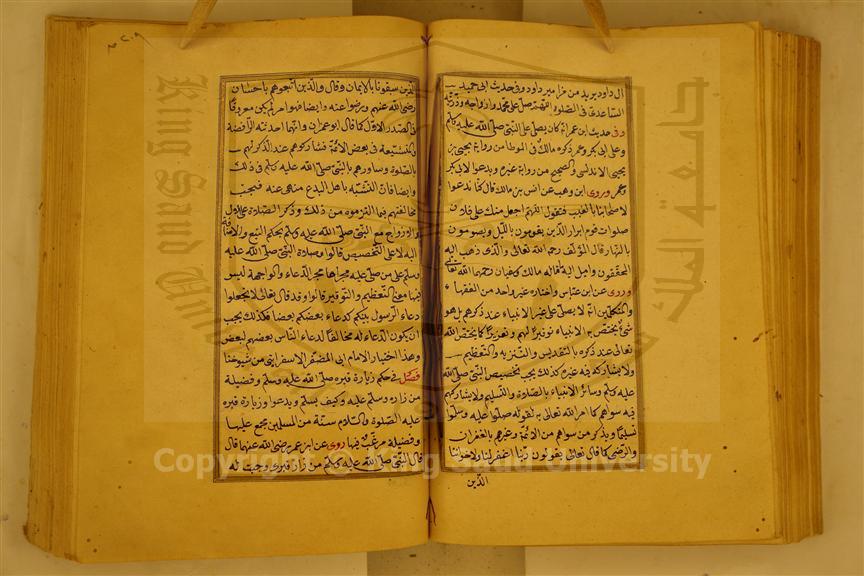 ال داود يريد من مزامير داود وفي حديث ابي حميد
الساعدي في الصلوة اللهم صل على محمد وازواجه وذريته
وفي حديث ابن عمر انه كان يصلي على النبي صلى الله عليه وسلم
وعلى ابي بكر وعمر ذكره مالك في الموطا من رواية يحيى بن
يحيى الاندلسي والصحيح من رواية غيره ويدعوا لابي بكر
وعمر وروى ابن وهب عن انس بن مالك قال كنا ندعوا
لاصحابنا بالغيب فنقول اللهم اجعل منك على فلان
صلوات قوم ابرار الذين يقومون بالليل ويصومون
بالنهار قال المؤلف رحمه الله تعالى والذي ذهب اليه
المحققون واميل اليه ما قاله مالك وسفيان رحمهما الله تعالى
وروى عن ابن عباس واختاره غير واحد من الفقهاء
والمتكلمين انه لا يصلى على غير الانبياء عند ذكرهم بل هو
شيء يختص به الانبياء توقيرا لهم وتعزيزا كما يختص الله
تعالى عند ذكره بالتقديس والتنزيه والتعظيم
ولا يشاركه فيه غيره كذلك يجب تخصيص النبي صلى الله
عليه وسلم وسائر الانبياء بالصلاة والتسليم ولا يشاركهم
فيه سواهم كما امر الله تعالى به بقوله صلوا عليه وسلموا
تسليما ويذكر من سواهم من الائمة وغيرهم بالغفران
والرضى كما قال تعالى يقولون ربنا اغفر لنا ولاخواننا
الذين
الذين سبقونا بالايمان وقال والذين اتبعوهم باحسان
رضي الله عنهم ورضوا عنه وايضا فهو امر لم يكن معروفا
في الصدر الاول كما قال ابو عمران وانما احدثته الرافضة
والمتشيعة في بعض الائمة فشاركوهم عند الذكر لهم
بالصلوة وساووهم بالنبي صلى الله عليه وسلم في ذلك
وايضا فان التشبه باهل البدع منهي عنه فتجب
مخالفتهم فيما التزموه من ذلك وذكر الصلاة على الال
والازواج مع النبي صلى الله عليه وسلم بحكم التبع والاضافة
اليه لا على التخصيص قالوا وصلاة النبي صلى الله عليه
وسلم على من صلى عليه مجراها مجرى الدعاء والمواجهة ليس
فيها معنى التعظيم والتوقير قالوا وقد قال تعالى لا تجعلوا
دعاء الرسول بينكم كدعاء بعضكم بعضا فكذلك يجب
ان يكون الدعاء له مخالفا لدعاء الناس بعضهم لبعض
وهذا اختيار الامام ابي المظفر الاسفرايني من شيوخنا
فصل في حكم زيارة قبره صلى الله عليه وسلم وفضيلة
من زاره وسلم عليه وكيف يسلم ويدعوا وزيارة قبره
عليه الصلوة والسلام سنة من المسلمين مجمع عليها
وفضيلة مرغب فيها روى عن ابن عمر رضي الله عنهما قال
قال النبي صلى الله عليه وسلم من زار قبري وجبت له
King Saud University
جامعة الملك
Copyright © King Saud University